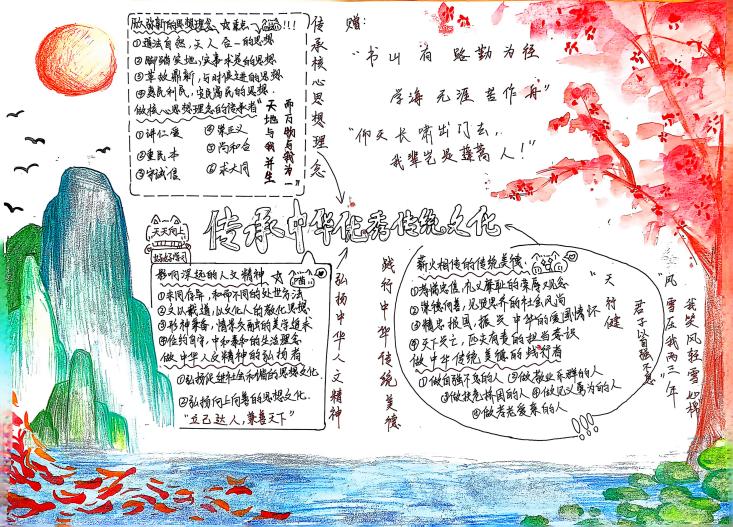 历久弥新的思想理念 ☆重点 !!!
①道法自然,天人合一的思想
②脚踏实地,实事求是的思想
③革故鼎新,与时俱进的思想
④惠民利民,安民富民的思想
做核心思想理念的传承者
①讲仁爱 ④崇正义
②重民本 ⑤尚和合
③守诚信 ⑥求大同
"天地与我并生
而万物与我为一"
传承核心思想理念
赠:
"书山有路勤为径
学海无涯苦作舟"
"仰天长啸出门去,
我辈岂是蓬蒿人!"
传承中华优秀传统文化
天天向上
好好学习
影响深远的人文精神 ☆
①求同存异,和而不同的处世方法
②文以载道,以文化人的教化思想
③形神兼备,情景交融的美学追求
④俭约自守,中和泰和的生活理念
做中华人文精神的弘扬者
①弘扬促进社会和谐的思想文化
②弘扬向上向善的思想文化
"立己达人,兼善天下"
弘扬中华人文精神
践行中华传统美德
薪火相传的传统美德
①孝悌忠信,礼义廉耻的荣辱观念
②崇德向善,见贤思齐的社会风尚
③精忠报国,振兴中华的爱国情怀
④天下兴亡,匹夫有责的担当意识
做中华传统美德的践行者
①做自强不息的人 ②做敬业乐群的人
③做扶危济困的人 ④做见义勇为的人
⑤做孝老爱亲的人
!!!
"天行健
君子以自强不息"
"风雪压我两三年
我笑风轻雪如棉"